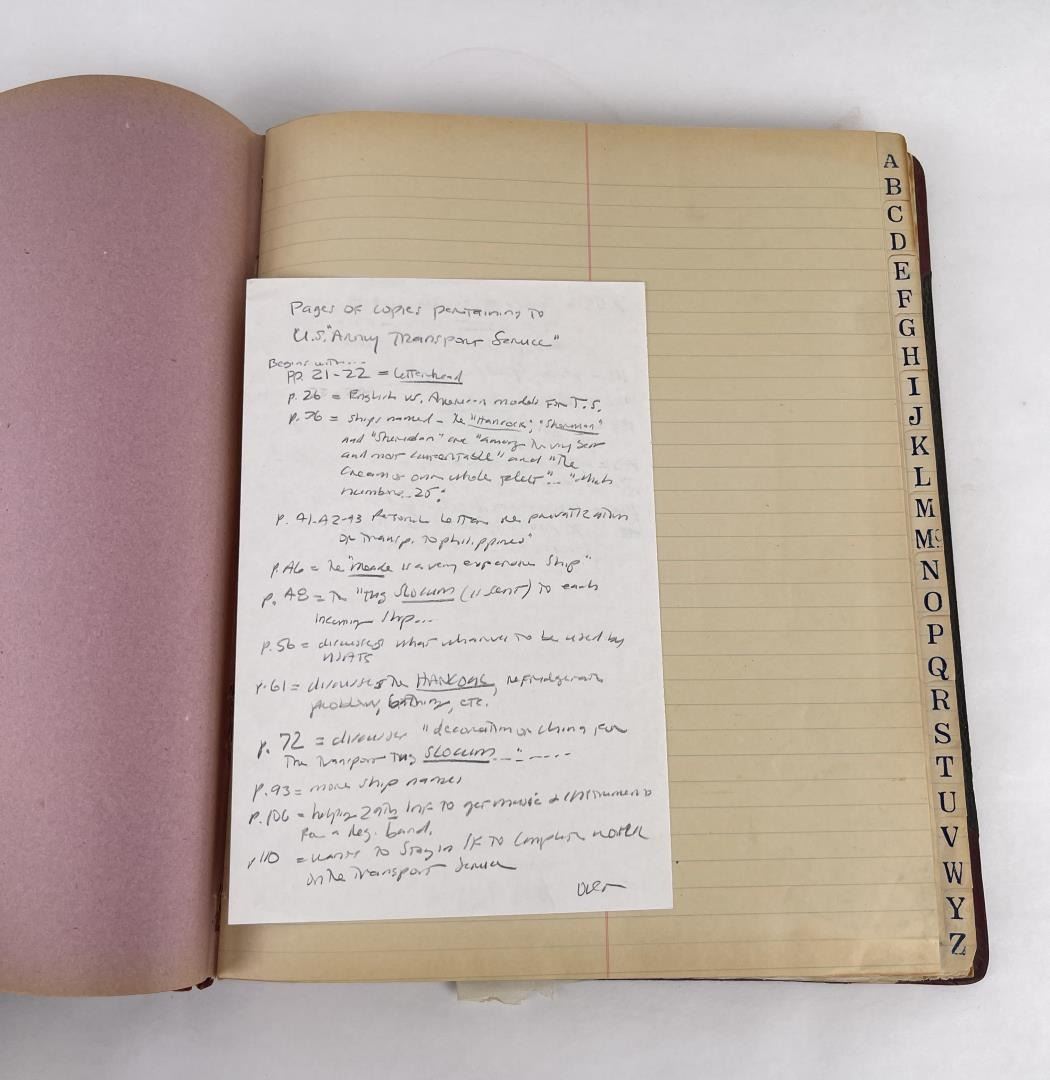 Pages of copies pertaining to
U.S. "Army Transport Service"
Begins with....
pp. 21-22 = Letterhead
p. 26 = English vs. American models for T.S.
p. 36 = ships named - the "Hancock", "Sherman"
and "Sheridan" are "among the very best
and most comfortable" and "the
cream of our whole fleet"... "which
numbers 25."
p. 41-42-43 Personal Letter re privatization
of transp. to philippines"
p. 46 = The "Meade is a very expensive ship"
p. 48 = The "Tug Slocum (is sent) to each
incoming ship...
p. 56 = discusses what wharves to be used by
USATS
p. 61 = discusses the HANCOCK, refridgeration
problem, bathing, etc.
p. 72 = discusses "decoration of china for
The Transport Tug SLOCUM..."
p. 93 = more ship names
p. 106 = helping 29th Inf to get music & instruments
for a Reg. band.
p 110 = wants to stay in SF to complete work
on the Transport Service
over
A
B
C
D
E
F
G
H
I
J
K
L
M
Mc
N
O
P
Q
R
S
T
U
V
W
Y
Z